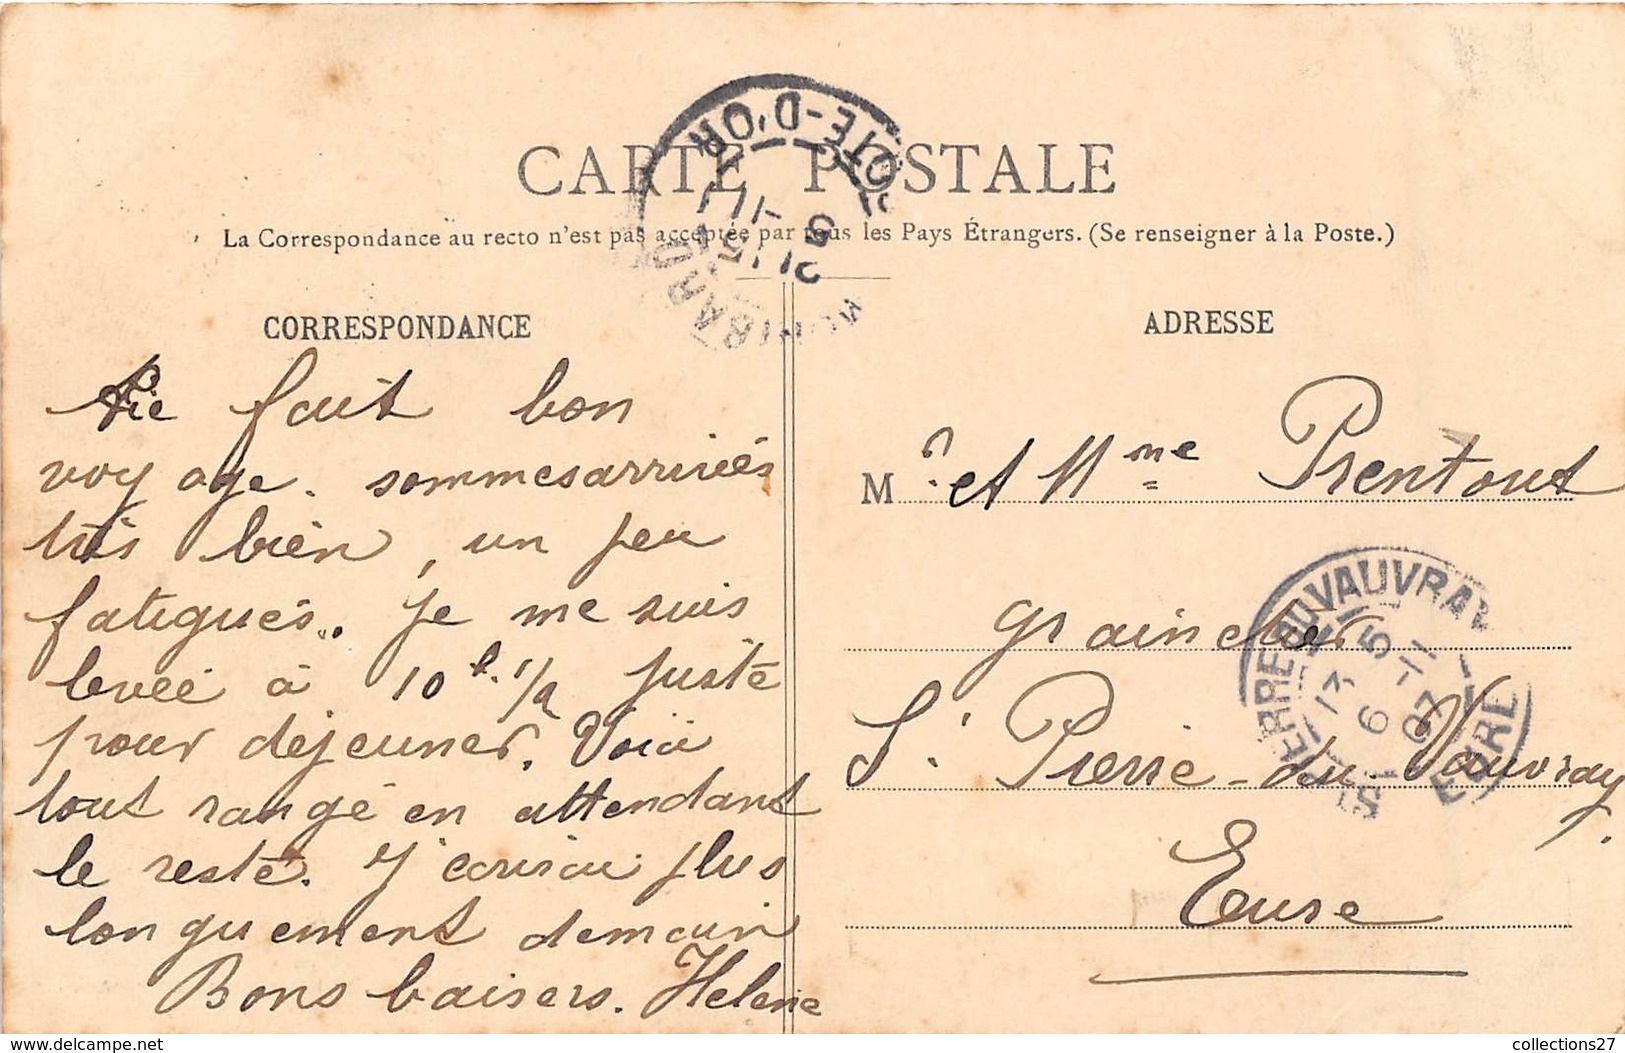 CARTE POSTALE
La Correspondance au recto n'est pas acceptée par tous les Pays Étrangers. (Se renseigner à la Poste.)
CORRESPONDANCE
fait bon
voyage. sommes arrivés
très bien, un peu
fatigués.. Je me suis
levée à 10 h. 1/2 juste
pour déjeuner. Voici
tout rangé en attendant
le reste. J'écrirai plus
longuement demain
Bons baisers. Helene
ADRESSE
M r et Mme Prentout
grainetier
St Pierre-du-Vauvray
Eure
COTE-D'OR
MONTBARD
ST PIERRE DU VAUVRAY
EURE
13 5
6 -11
07
collections27